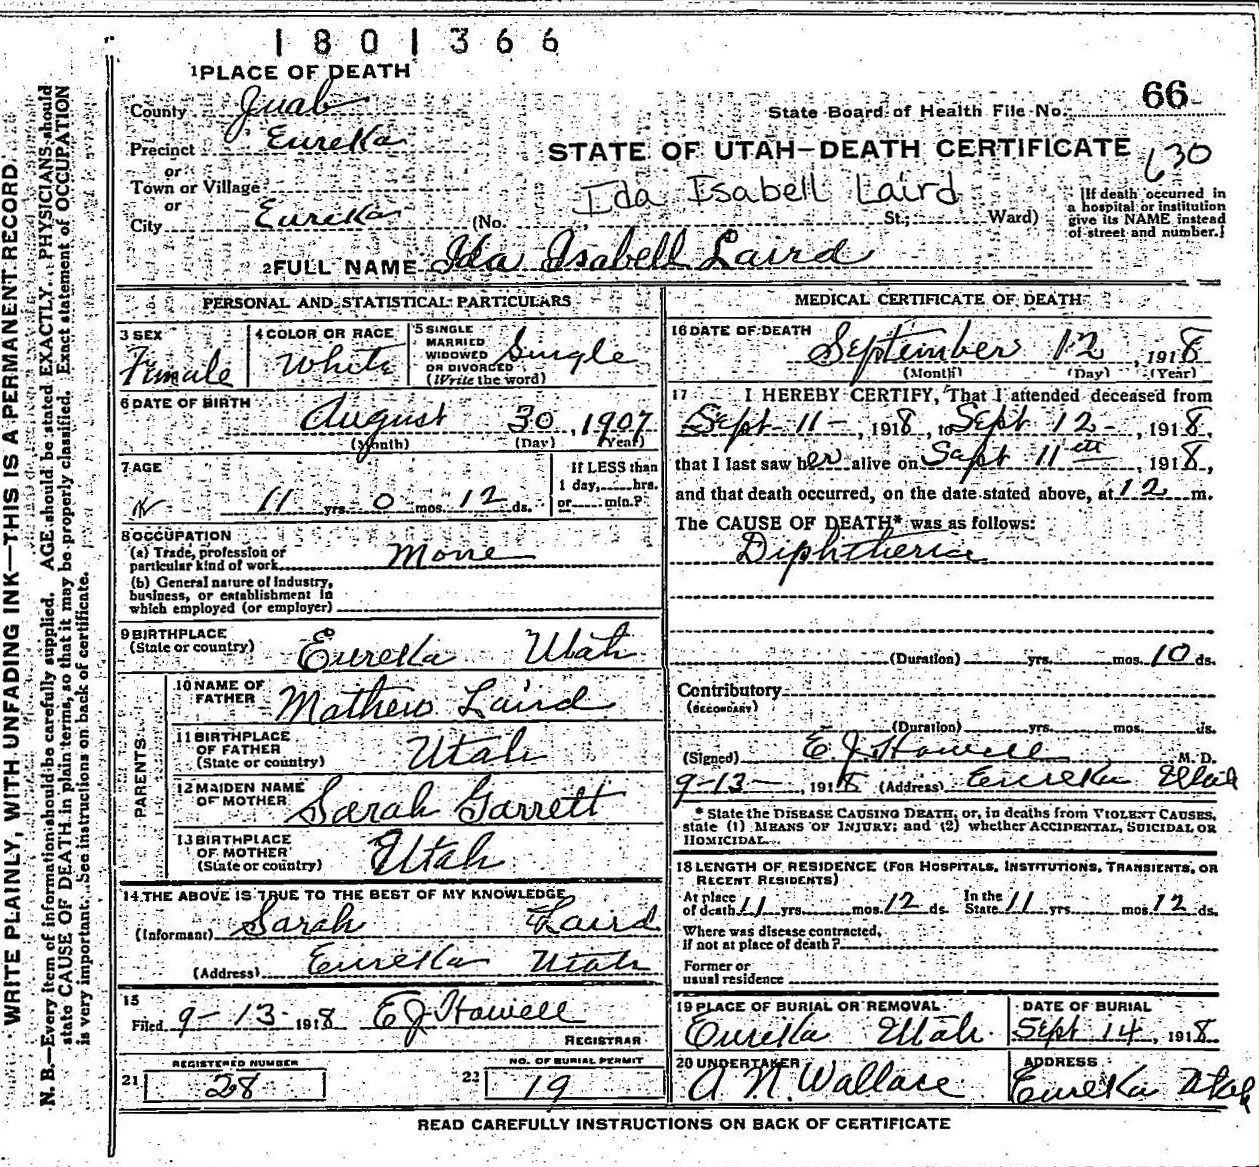 1801366
1 PLACE OF DEATH
County Juab
State Board of Health File No. 66
Precinct Eureka
STATE OF UTAH—DEATH CERTIFICATE 630
or
Town or Village
Ida Isabell Laird
or
City Eureka (No. St.; Ward)
[If death occurred in
a hospital or institution
give its NAME instead
of street and number.]
2 FULL NAME Ida Isabell Laird
PERSONAL AND STATISTICAL PARTICULARS
3 SEX
Female
4 COLOR OR RACE
White
5 SINGLE
MARRIED
WIDOWED
OR DIVORCED
(Write the word)
Single
6 DATE OF BIRTH
August 30, 1907
(Month) (Day) (Year)
7 AGE
11 yrs. 0 mos. 12 ds.
If LESS than
1 day, hrs.
or min.?
8 OCCUPATION
(a) Trade, profession or
particular kind of work None
(b) General nature of industry,
business, or establishment in
which employed (or employer)
9 BIRTHPLACE
(State or country) Eureka Utah
PARENTS
10 NAME OF
FATHER Mathew Laird
11 BIRTHPLACE
OF FATHER
(State or country) Utah
12 MAIDEN NAME
OF MOTHER Sarah Garrett
13 BIRTHPLACE
OF MOTHER
(State or country) Utah
14 THE ABOVE IS TRUE TO THE BEST OF MY KNOWLEDGE
(Informant) Sarah Laird
(Address) Eureka Utah
15
Filed 9-13- 1918 E J Howell
REGISTRAR
REGISTERED NUMBER
21 28
NO. OF BURIAL PERMIT
22 19
MEDICAL CERTIFICATE OF DEATH
16 DATE OF DEATH
September 12, 1918
(Month) (Day) (Year)
17 I HEREBY CERTIFY, That I attended deceased from
Sept 11-, 1918, to Sept 12-, 1918,
that I last saw her alive on Sept 11th, 1918,
and that death occurred, on the date stated above, at 12 m.
The CAUSE OF DEATH* was as follows:
Diphtheria
(Duration) yrs. mos. 10 ds.
Contributory
(SECONDARY)
(Duration) yrs. mos. ds.
(Signed) E. J. Howell M. D.
9-13-, 1918 (Address) Eureka Utah
* State the DISEASE CAUSING DEATH; or, in deaths from VIOLENT CAUSES,
state (1) MEANS OF INJURY; and (2) whether ACCIDENTAL, SUICIDAL OR
HOMICIDAL.
18 LENGTH OF RESIDENCE (FOR HOSPITALS, INSTITUTIONS, TRANSIENTS, OR
RECENT RESIDENTS)
At place
of death 11 yrs. mos. 12 ds.
In the
State 11 yrs. mos. 12 ds.
Where was disease contracted,
if not at place of death?
Former or
usual residence
19 PLACE OF BURIAL OR REMOVAL
Eureka Utah.
DATE OF BURIAL
Sept 14, 1918
20 UNDERTAKER
A. N. Wallace
ADDRESS
Eureka Utah
READ CAREFULLY INSTRUCTIONS ON BACK OF CERTIFICATE
WRITE PLAINLY, WITH UNFADING INK—THIS IS A PERMANENT RECORD
N. B.—Every item of information should be carefully supplied. AGE should be stated EXACTLY. PHYSICIANS should
state CAUSE OF DEATH in plain terms, so that it may be properly classified. Exact statement of OCCUPATION
is very important. See instructions on back of certificate.